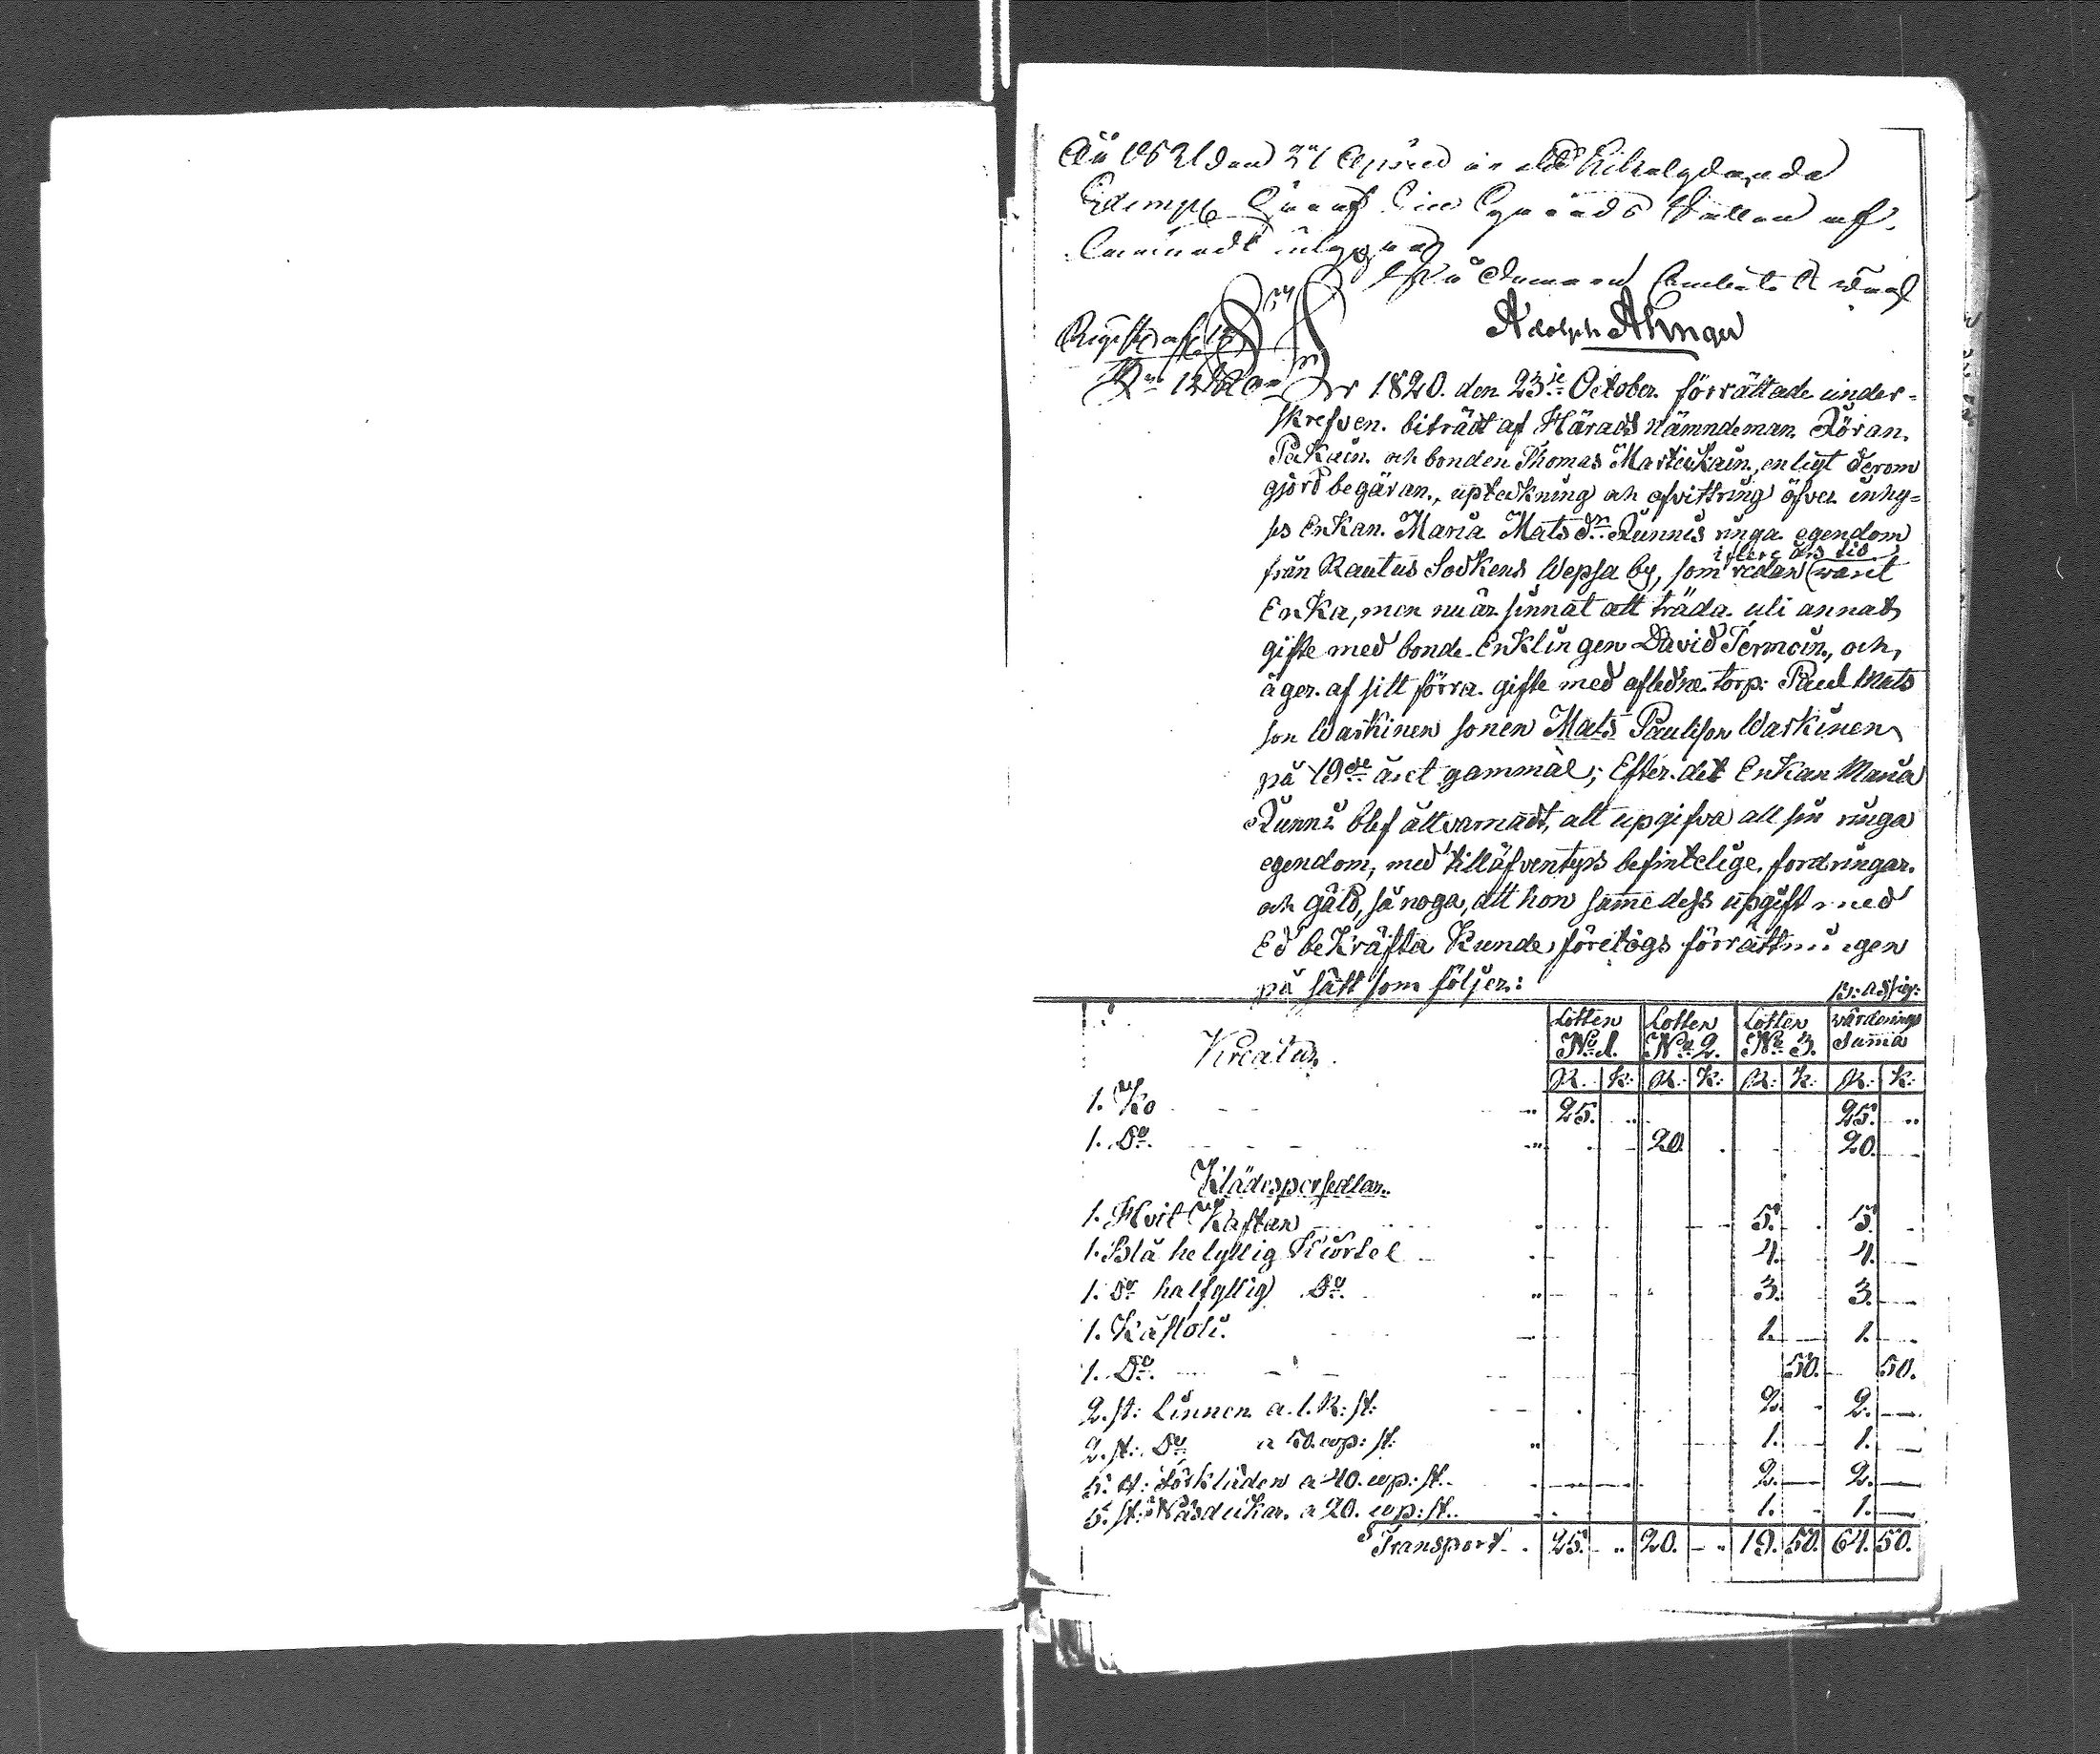 År 1821 den 27 April är
Exempl
På Domare Embetets wägnar
Adolph Ahnger
År 1820. den 23:ie October. förrättade under=
skrefven. biträdt af Härads Nämndeman Jöran.
Pakain. och bonden Thomas Martikain, enligt derom
gjord begäran, upteckning och afvittring öfver inhy=
ses Enkan. Maria Mats dr. Kunnis ringa egendom
ifrån Rautus Sockens Wepsa by, som redan i flere års tid varit
Enka, men nu är sinnat att träda uti annat
gifte med bonde-Enklingen David Termoin, och,
äger. af sitt förra. gifte med afledne. torp: Paul Mats
son Waskinen sonen Mats Paulsson Waskinen
på 19de året gammal; Efter det Enkan Maria
Kunni blef åtvarnadt, att upgifva all sin ringa
egendom, med tilläfventyrs befintelige. fordringar.
och gäld, så noga, att hon samme dess upgift med
Ed bekräfta Kunde, företogs förrättningen
på sätt som följer:
B: Assig:
Kreatur. Lotten No. 1. Lotten No. 2. Lotten No. 3. Värderings Summa
R. k: R. k: R. k: R. k:
1. Ko 25. 25.
1. Do. 20. 20.
Klädespersedlar.
1. Hvit Kaftan 5. 5.
1. Blå helyllig Kiortel 4. 4.
1. Do halfyllig Do. 3. 3.
1. Kastoli. 1. 1.
1. Do. 50. 50.
2. st: Linnen a. 1. R: st: 2. 2.
2. st: Do a 50. cop: st: 1. 1.
5. st: Förkläden a 40. cop: st. 2. 2.
5. st: Näsdukar. a 20. cop: st. 1. 1.
Transport. 25. 20. 19. 50. 64. 50.